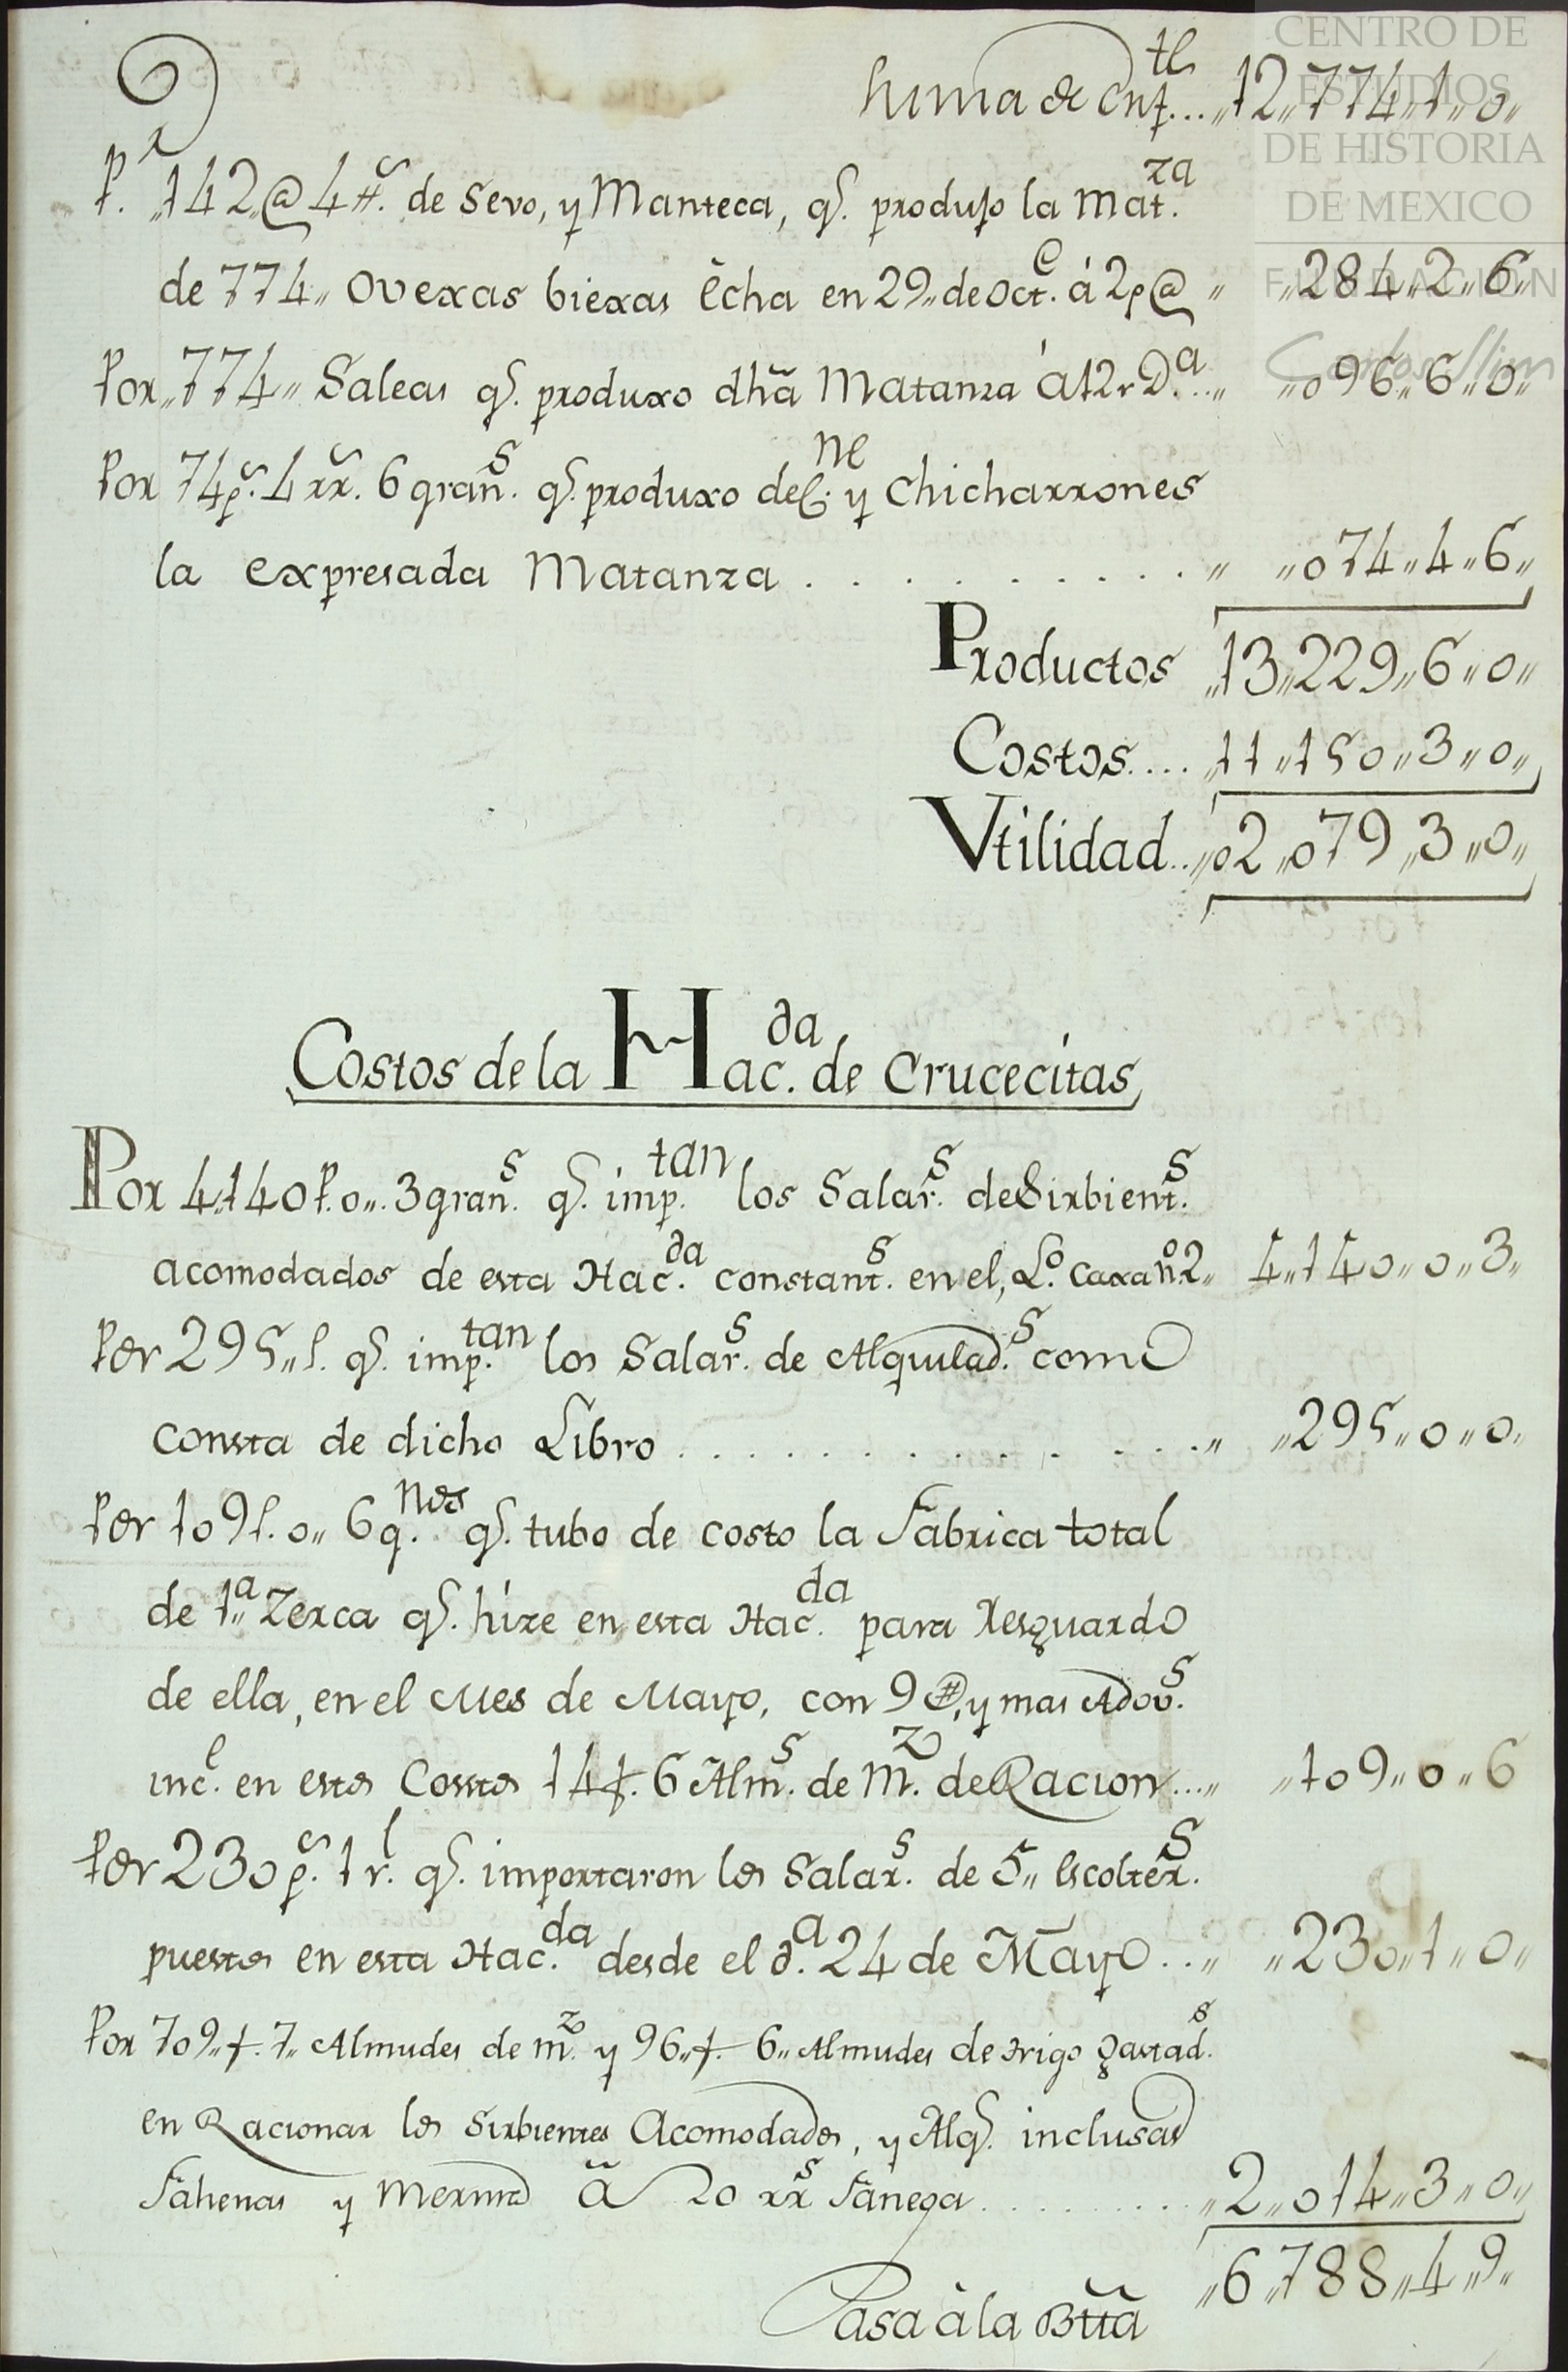 CENTRO DE
ESTUDIOS
DE HISTORIA
DE MEXICO
FUNDACIÓN
Carlos Slim
Suma de Enf.tl ... „12„774„1„0„
P.r „142„@ 4 #.s de Sevo, y Manteca, q.e produjo la Mat.za
de 774„ Ovexas biexas ẽcha en 29„ de Oct.e á 2p @ „ „284„2„6„
Por „774„ Saleas q.e produxo dhã Matanza á 12 r D.a .. „ „096„6„0„
Por 74p.s 4 rr.s 6 gran.s q.e produxo de C.ne y Chicharrones
la expresada Matanza . . . . . . . . . . „ „074„4„6„
Productos „13„229„6„0„
Costos .... „11„150„3„0„
Vtilidad .. „02„079„3„0„
Costos de la Hac.da de Crucecitas
Por 4„140 P. 0„. 3 gran.s q.e imp.tan los Salar.s de Sirbient.s
acomodados de esta Hac.da constant.s en el, L.o Caxa n.o 2„ 4„140„0„3„
Por 295„ P. q.e imp.tan los Salar.s de Alquilad.s como
consta de dicho Libro . . . . . . . . . . „ „295„0„0„
Por 109 P. 0„ 6 g.nos q.e tubo de costo la Fabrica total
de 1„a Zerca q.e hize en esta Hac.da para Resguardo
de ella, en el Mes de Mayo, con 9 @, y mas Adov.s
inc.e en estos Costos 14 f. 6 Alm.s de M.z de Racion .... „ „109„0„6
Por 230 p.s 1 r.l q.e importaron los Salar.s de 5„ Escolter.s
puestos en esta Hac.da desde el d.a 24 de Mayo .. „ „230„1„0„
Por 709„ f. 7„ Almudes de m.z y 96„ f. 6„ Almudes de trigo gastad.s
en Racionar los Sirbientes Acomodados, y Alq.s inclusas
Fahenas y Merma ã 20 rr.s Fanega . . . . . . . . „2„014„3„0„
„6„788„4„9„
Pasa à la Bttã